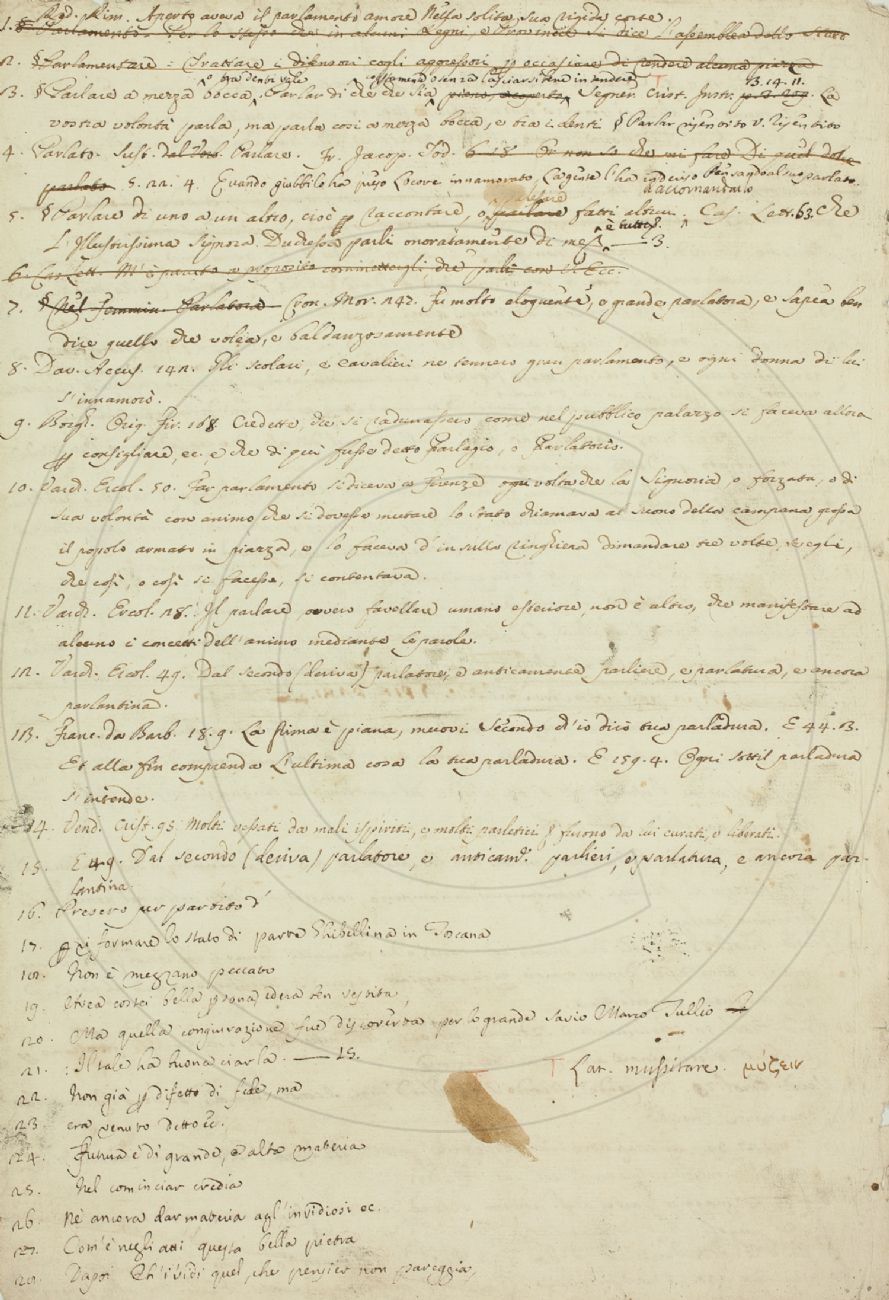 Red. Rim. Aperto aveva il parlamento amore Nella solita sua rigida corte.
1. § Parlamento. Per lo stesso che in alcuni Regni, e Provincie si dice l'assemblea dello Stato
2. § Parlamentare = Trattare i difensori cogli aggressori ꝑ occasione di rendere alcuna piazza
o fra denti vale
13. 14. 11.
3. § Parlare a mezza bocca, Parlar di che che sia Segner. Crist. Instr. La
vostra volontà parla, ma parla così a mezza bocca, e tra i denti § Parlar risentito v. risentito
4. Parlato. Sust. dal Verb. Parlare. Fr. Jacop. Tod. 6. 18. Or non so che mi fare Di quel dolce
parlato 5. 22. 4. Quando giubbilo ha preso Lo core innamorato, La gente l'ha in deriso Pensando al suo parlato.
raccomandarlo
5. § Parlare di uno a un altro, cioè ꝑ raccontare, o parlare fatti altrui. Cas. Lett. 63. Che
e tutti.
L'Illustrissima Signora Duchessa parli onoratamente di me — 3.
6. Cas. Lett. M'è paruto a proposito commettergli che parli con V. Ecc.
7. § Nel femmin. Parlatora Cron. Mor. 242. Fu molto eloquente, o grande parlatora, e sapea ben
dire quello che volea, e baldanzosamente
8. Dav. Accus. 142. Gli scolari, e cavalieri ne tennero gran parlamento, e ogni donna di lui
s'innamorò.
9. Borgh. Orig. Fir. 168. Credette, che si radunassero come nel pubblico palazzo si faceva allora
ꝑ consigliare, ec. e che di qui fusse detto Parlagio, o Parlatorio.
10. Varch. Ercol. 50. Far parlamento si diceva a Firenze ogni volta che la Signoria, o forzata, o di
sua volontà con animo che si dovesse mutare lo stato chiamava al suono della campana grossa
il popolo armato in piazza, e lo faceva d'in sulla ringhiera dimandare tre volte, s'egli,
che così, o così si facesse, si contentava.
11. Varch. Ercol. 28. Il parlare, ovvero favellare umano esteriore, non è altro, che manifestare ad
alcuno i concetti dell'animo mediante le parole.
12. Varch. Ercol. 49. Dal secondo (deriva) parlatore, e anticamente parliere, e parlatura, e ancora
parlantina.
13. Franc. da Barb. 18. 9. La prima è piana, muovi Secondo ch'io dico tua parladura. E 44. 13.
Et alla fin comprenda L'ultima cosa la tua parladura. E 159. 4. Ogni sottil parladura
s'intende.
14. Vend. Crist. 95. Molti vessati da mali ispiriti, e molti parletici furono da lui curati, e liberati.
15. E 49. Dal secondo (deriva) parlatore, e anticam. parlieri, e parlatura, e ancora par-
lantina.
16. Presero per partito d'
17. ꝑ riformare lo stato di parte Ghibellina in Toscana
18. Non è mezzano peccato
19. Avea costei bella ꝑsona, ed era ben vestita,
20. Ma quella congiurazione fue discoverta per lo grande savio Marco Tullio
21. Il tale ha buona ciarla. — 15.
Lat. mussitare. μύζειν
22. Non già ꝑ difetto di fede, ma
23. era venuto detto ec.
24. Futura è di grande, e alta materia
25. Nel cominciar credia
26. Nè ancora dar materia agl'invidiosi ec.
27. Com'è negli atti questa bella pietra
28. Dapoi Ch'i' vidi quel, che pensier non pareggia,